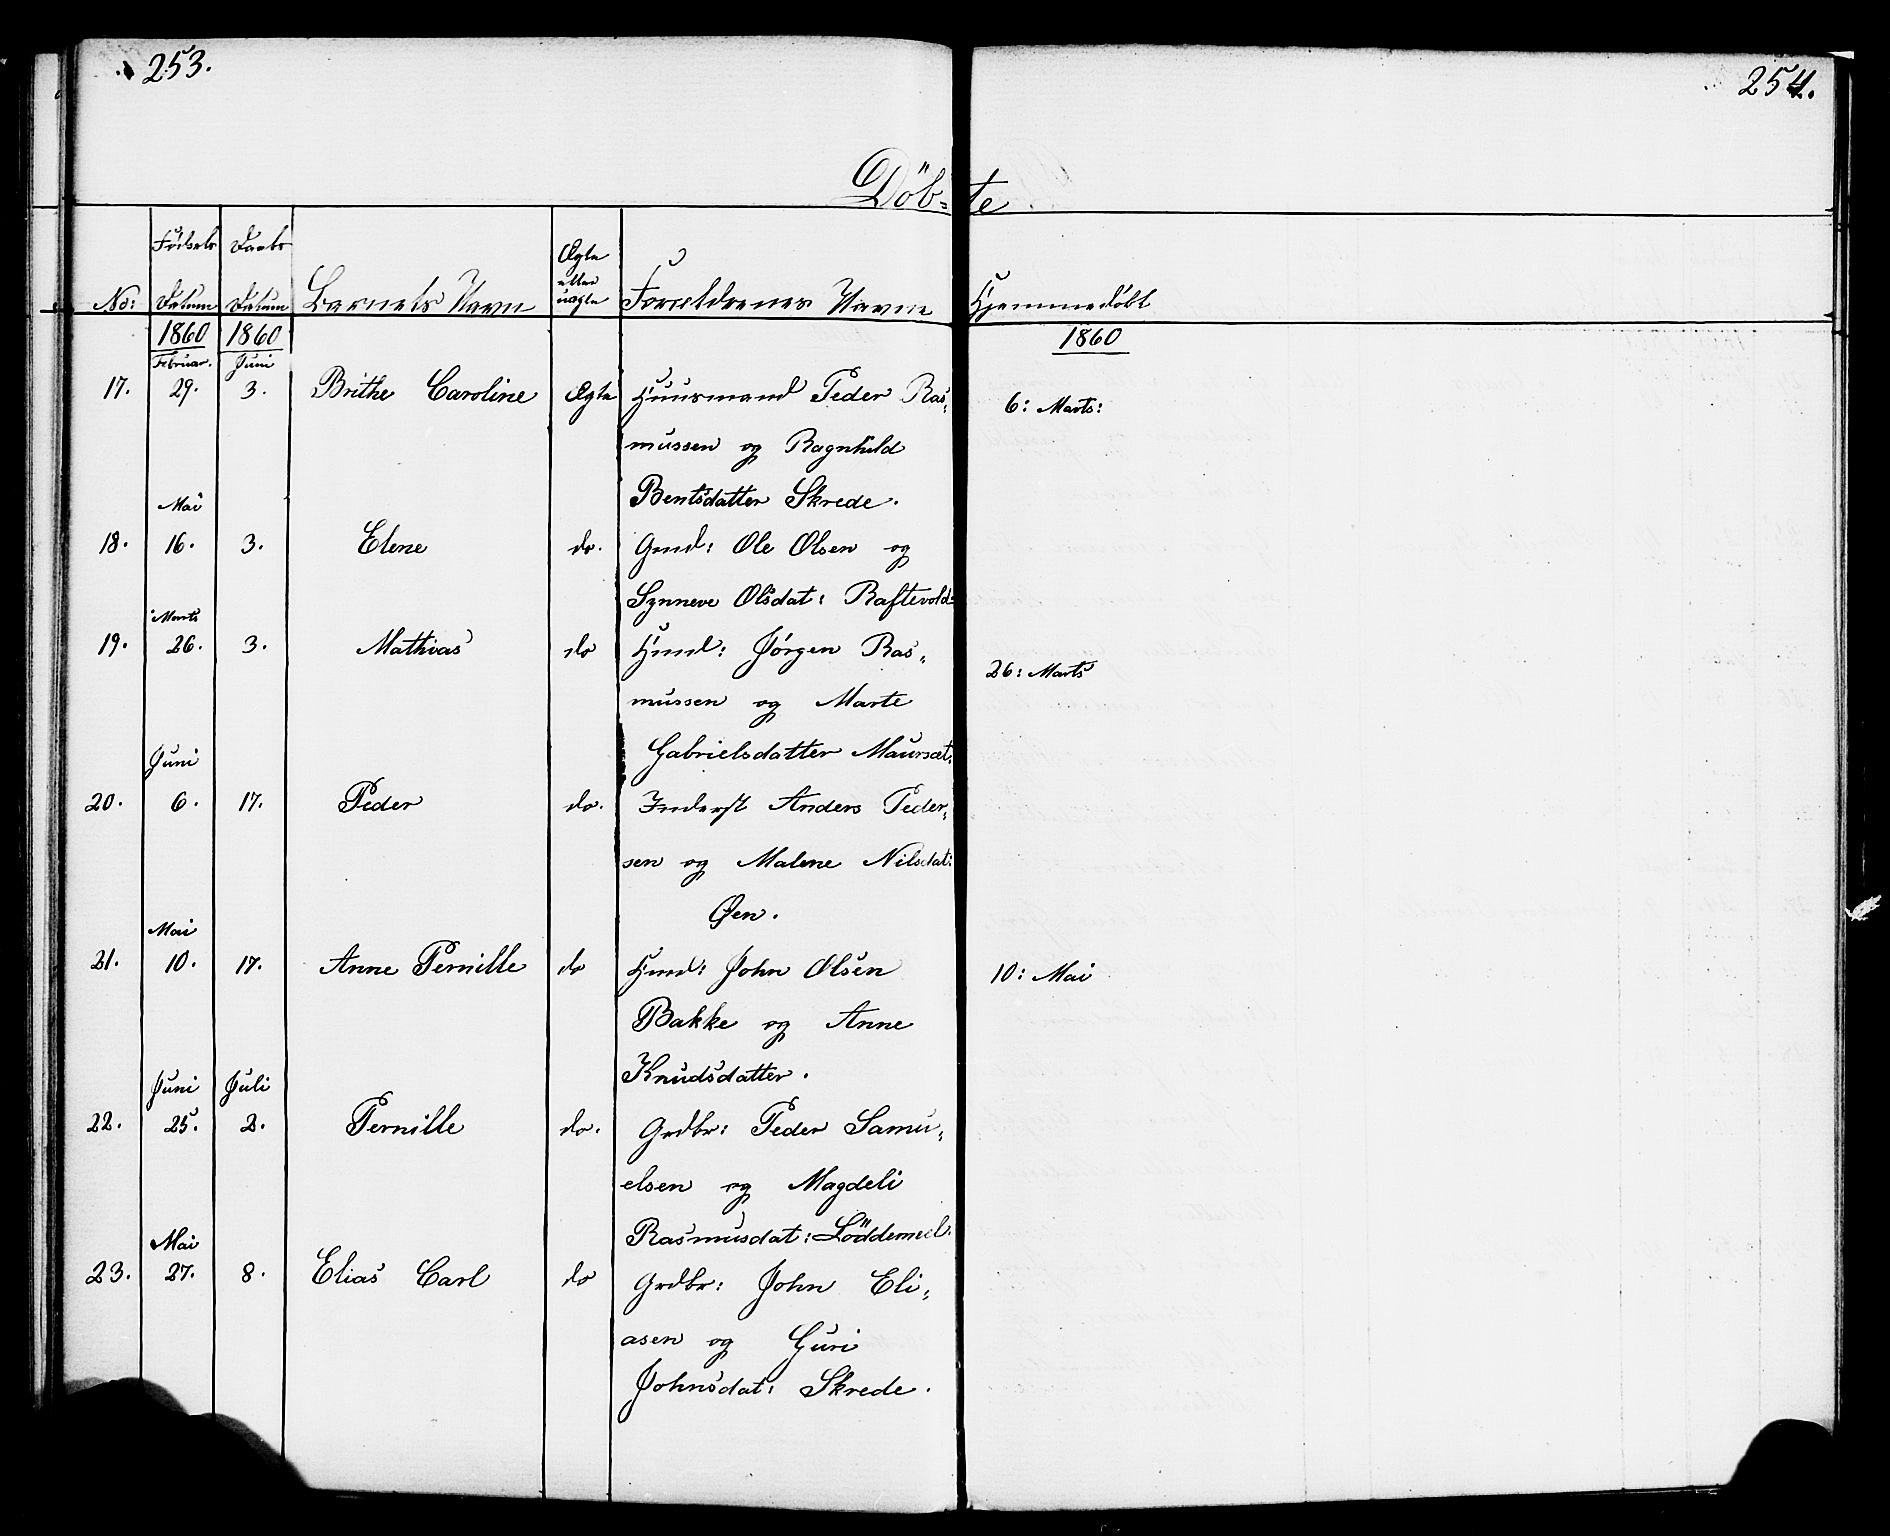 253.
254.
Döb=te.
No: Fødsels Datum Daabs Datum Barnets Navn Ægte eller uægte Forældrenes Navne Hjemmedöbt
1860 1860 1860
Februar. Juni
17. 29. 3. Brithe Caroline Ægte Huusmand Peder Ras= 6: Marts:
mussen og Ragnhild
Bentsdatter Skrede.
Mai
18. 16. 3. Elene do. Gmd: Ole Olsen og
Synneve Olsdat: Raftevold=
Marts
19. 26. 3. Mathias do Hmd: Jörgen Ras= 26: Marts
mussen og Marte
Gabrielsdatter Maursæt.
Juni
20. 6. 17. Peder do. Inderst Anders Peder=
sen og Malene Nilsdat:
Øen.
Mai
21. 10. 17. Anne Pernille do Hmd: John Olsen 10: Mai
Bakke og Anne
Knudsdatter.
Juni Juli
22. 25. 2. Pernille do. Grdbr: Peder Samu=
elsen og Magdeli
Rasmusdat: Löddemeel.
Mai
23. 27. 8. Elias Carl do Grdbr: John Eli=
asen og Guri
Johnsdat: Skrede.